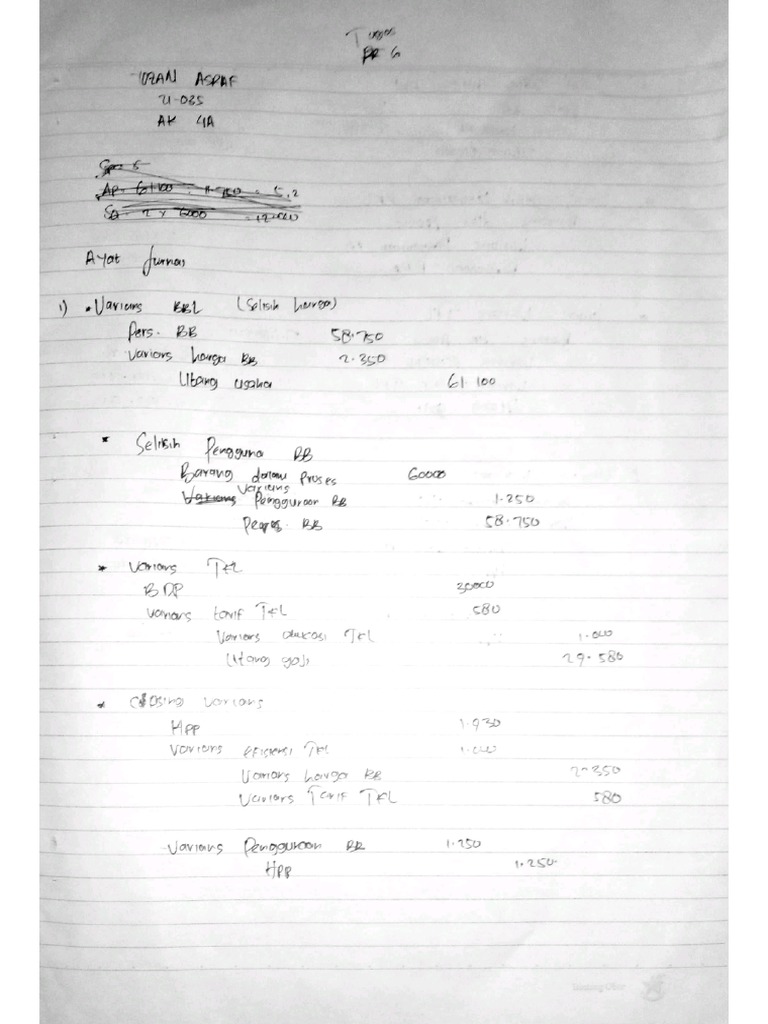 Tugas
BR 6
ASRAF
21-035
AK 4A
AP = 61100 : 11.750 = 5,2
SQ = 2 x 6000 = 12.000
Ayat Jurnal
1) * Varians BBL (Selisih harga)
Pers. BB 58.750
Varians harga BB 2.350
Utang usaha 61.100
* Selisih Pengguna BB
Barang dalam Proses 60000
Varians Varians Penggunaan BB 1.250
BB 58.750
* Varians TKL
BDP 30000
Varians tarif TKL 580
Varians TKL 1.000
Utang gaji 29.580
* Closing Varians
HPP 1.930
Varians efisiensi TKL 1.000
Varians harga BB 2.350
Varians Tarif TKL 580
Varians Penggunaan BB 1.250
HPP 1.250